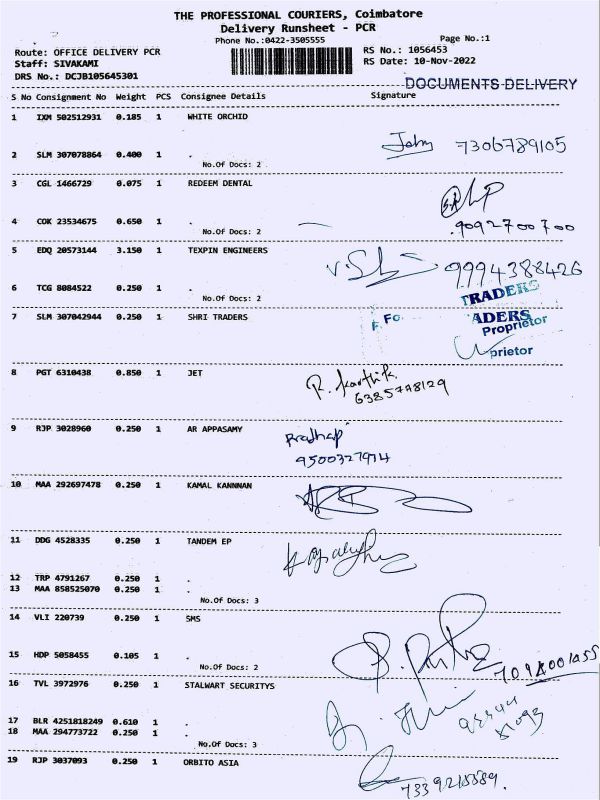 THE PROFESSIONAL COURIERS, Coimbatore
Delivery Runsheet - PCR
Phone No.:0422-3505555
Page No.:1
Route: OFFICE DELIVERY PCR
RS No.: 1056453
Staff: SIVAKAMI
RS Date: 10-Nov-2022
DRS No.: DCJB105645301
DOCUMENTS DELIVERY
S No Consignment No Weight PCS Consignee Details Signature
1 IXM 502512931 0.185 1 WHITE ORCHID
John 7306789105
2 SLM 307078864 0.400 1 .
No.Of Docs: 2
3 CGL 1466729 0.075 1 REDEEM DENTAL
4 COK 23534675 0.650 1 .
9092700700
No.Of Docs: 2
5 EDQ 20573144 3.150 1 TEXPIN ENGINEERS
9994388426
6 TCG 8084522 0.250 1 .
No.Of Docs: 2
TRADERS
7 SLM 307042944 0.250 1 SHRI TRADERS
Fo
ADERS
Proprietor
prietor
8 PGT 6310438 0.850 1 JET
R. Karthik
6385778129
9 RJP 3028960 0.250 1 AR APPASAMY
Pradhap
9500327914
10 MAA 292697478 0.250 1 KAMAL KANNNAN
11 DDG 4528335 0.250 1 TANDEM EP
12 TRP 4791267 0.250 1 .
13 MAA 858525070 0.250 1 .
No.Of Docs: 3
14 VLI 220739 0.250 1 SMS
15 HDP 5058455 0.105 1 .
No.Of Docs: 2
16 TVL 3972976 0.250 1 STALWART SECURITYS
17 BLR 4251818249 0.610 1 .
18 MAA 294773722 0.250 1 .
No.Of Docs: 3
19 RJP 3037093 0.250 1 ORBITO ASIA